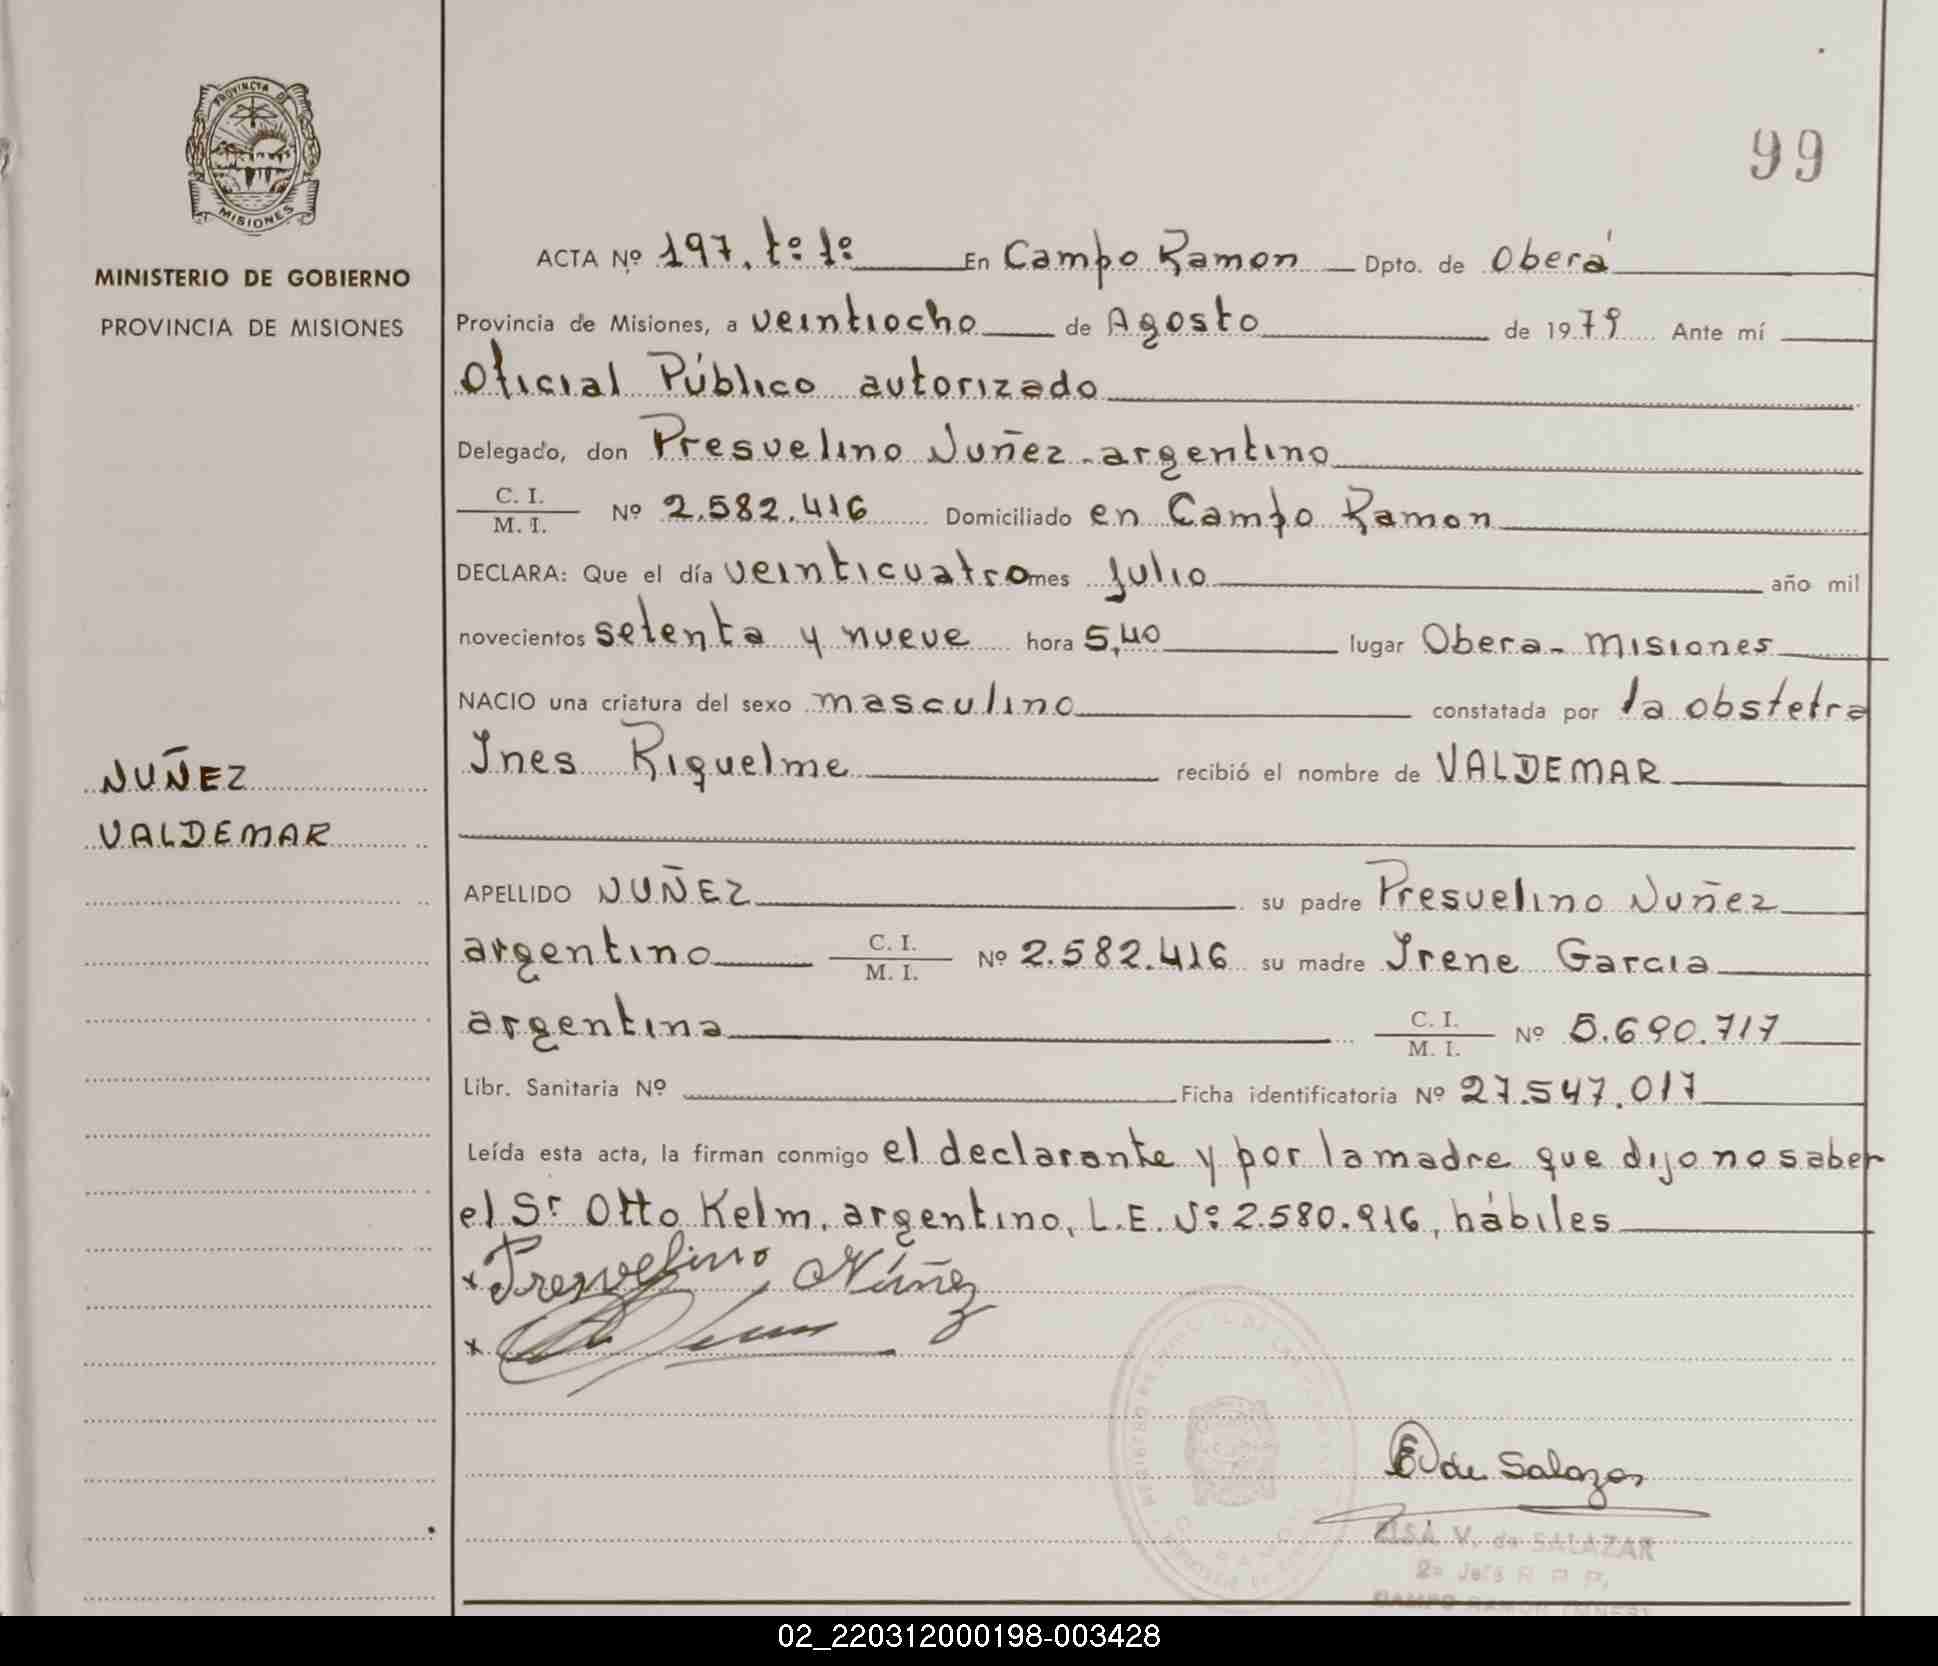 PROVINCIA DE
MISIONES
MINISTERIO DE GOBIERNO
PROVINCIA DE MISIONES
99
ACTA Nº 197. tº 1º En Campo Ramon Dpto. de Oberá
Provincia de Misiones, a veintiocho de Agosto de 1979 Ante mí
Oficial Público autorizado
Delegado, don Presvelino Nuñez - argentino
C. I.
M. I. Nº 2.582.416 Domiciliado en Campo Ramon
DECLARA: Que el día veinticuatro mes Julio año mil
novecientos setenta y nueve hora 5,40 lugar Obera - Misiones
NACIO una criatura del sexo masculino constatada por la obstetra
Ines Riquelme recibió el nombre de VALDEMAR
NUÑEZ
VALDEMAR
APELLIDO NUÑEZ su padre Presvelino Nuñez
argentino C. I.
M. I. Nº 2.582.416 su madre Irene Garcia
argentina C. I.
M. I. Nº 5.690.717
Libr. Sanitaria Nº Ficha identificatoria Nº 27.547.017
Leída esta acta, la firman conmigo el declarante y por la madre que dijo no saber
el Sr Otto Kelm, argentino, L.E. Nº 2.580.916, hábiles
x Presvelino Núñez
x
E de Salazar
ELSA V. de SALAZAR
2º Jefe R. P. P.
CAMPO RAMON (MNES)
02_220312000198-003428